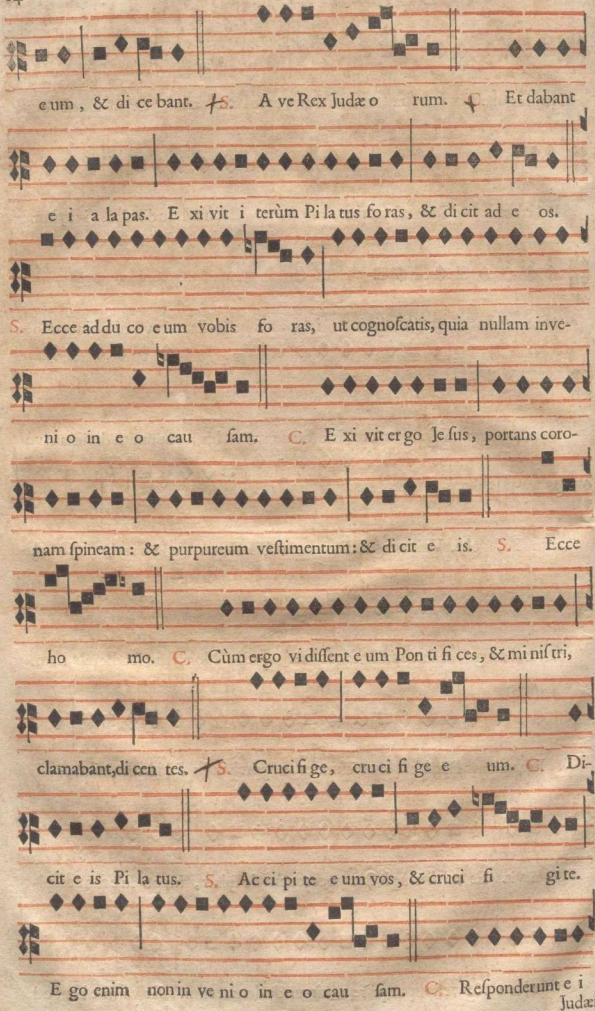 eum, & di ce bant. S. A ve Rex Judæ o rum. C. Et dabant
e i a la pas. E xi vit i terùm Pi la tus fo ras, & di cit ad e os.
S. Ecce ad du co e um vobis fo ras, ut cognoſcatis, quia nullam inve-
ni o in e o cau ſam. C. E xi vit er go Je ſus, portans coro-
nam ſpineam: & purpureum veſtimentum: & di cit e is. S. Ecce
ho mo. C. Cùm ergo vi diſſent e um Pon ti fi ces, & mi niſ tri,
clamabant, di cen tes. S. Cruci fi ge, cru ci fi ge e um. C. Di-
cit e is Pi la tus. S. Ac ci pi te e um vos, & cruci fi gi te.
E go enim non in ve ni o in e o cau ſam. C. Reſponderunt e i
Judæi